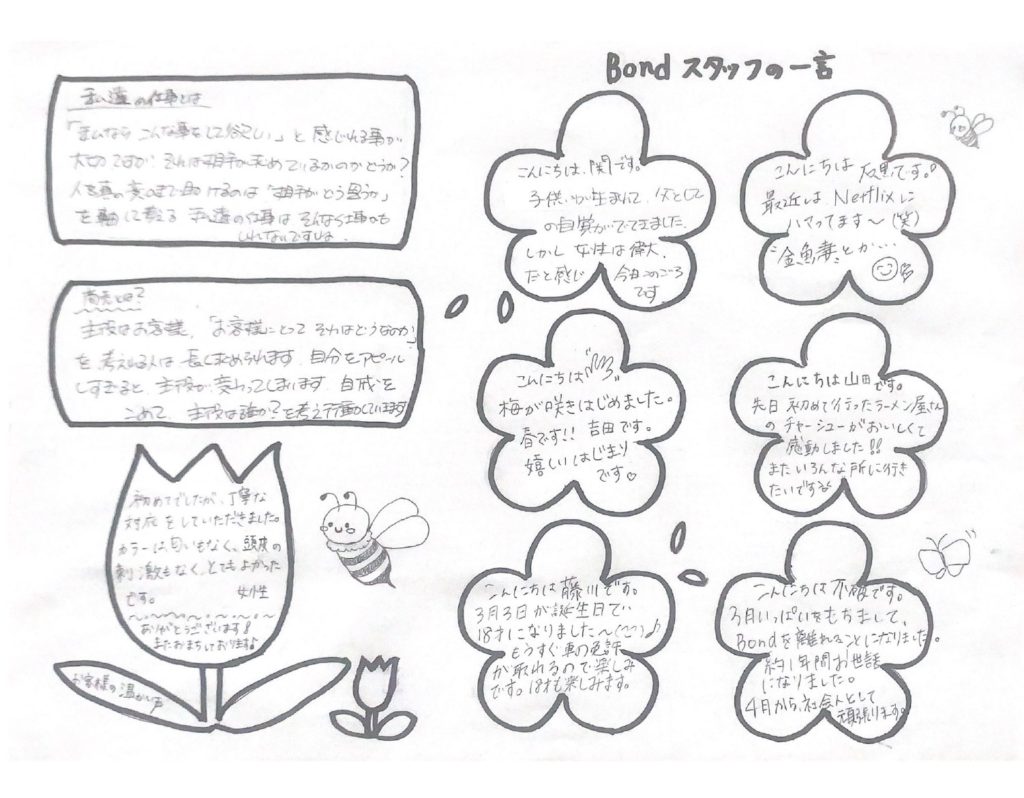 Bond スタッフの一言
私達の仕事とは
「まんなら こんな事をして欲しい」と 感じれる事が
大切ですが それは相手が求めているかのかどうか?
人を真の意味で助けるのは「相手がどう思うか」
を軸に考える 私達の仕事は そんな仕事かも
しれないですね。
商売とは?
主役はお客様、「お客様にとって それはどうなのか?」
を 考える人は 長く求められます。自分をアピール
しすぎると、主役が変わってしまいます。自戒を
こめて、主役は誰か?を考え行動しています
初めてでしたが、丁寧な
対応をしていただきました。
カラーは匂いもなく、頭皮の
刺激もなく、とてもよかった
です。 女性
ありがとうございます!
またおまちしております♪
お客様の温かい声
こんにちは、関です。
子供が生まれて、父としての
の自覚がでてきました。
しかし 女性は偉大、
だと感じる 今日このごろ
です
こんにちは 友黒です。
最近は、Netflixに
ハマってます〜(笑)
"金魚妻"とか…
こんにちは
梅が咲きはじめました。
春です!! 吉田です。
嬉しいはじまり
です♡
こんにちは 山田です。
先日 初めて行ったラーメン屋さん
の チャーシューがおいしくて
感動しました!!
また いろんな所に行き
たいです
こんにちは 藤川です。
3月3日が誕生日で
18才になりました〜(^^)♪
もうすぐ車の免許
が取れるので楽しみ
です。18才も楽しみます。
こんにちは 不破です。
3月いっぱいをもちまして、
Bondを離れることになりました。
約1年間お世話
になりました。
4月から、社会人として
頑張ります。